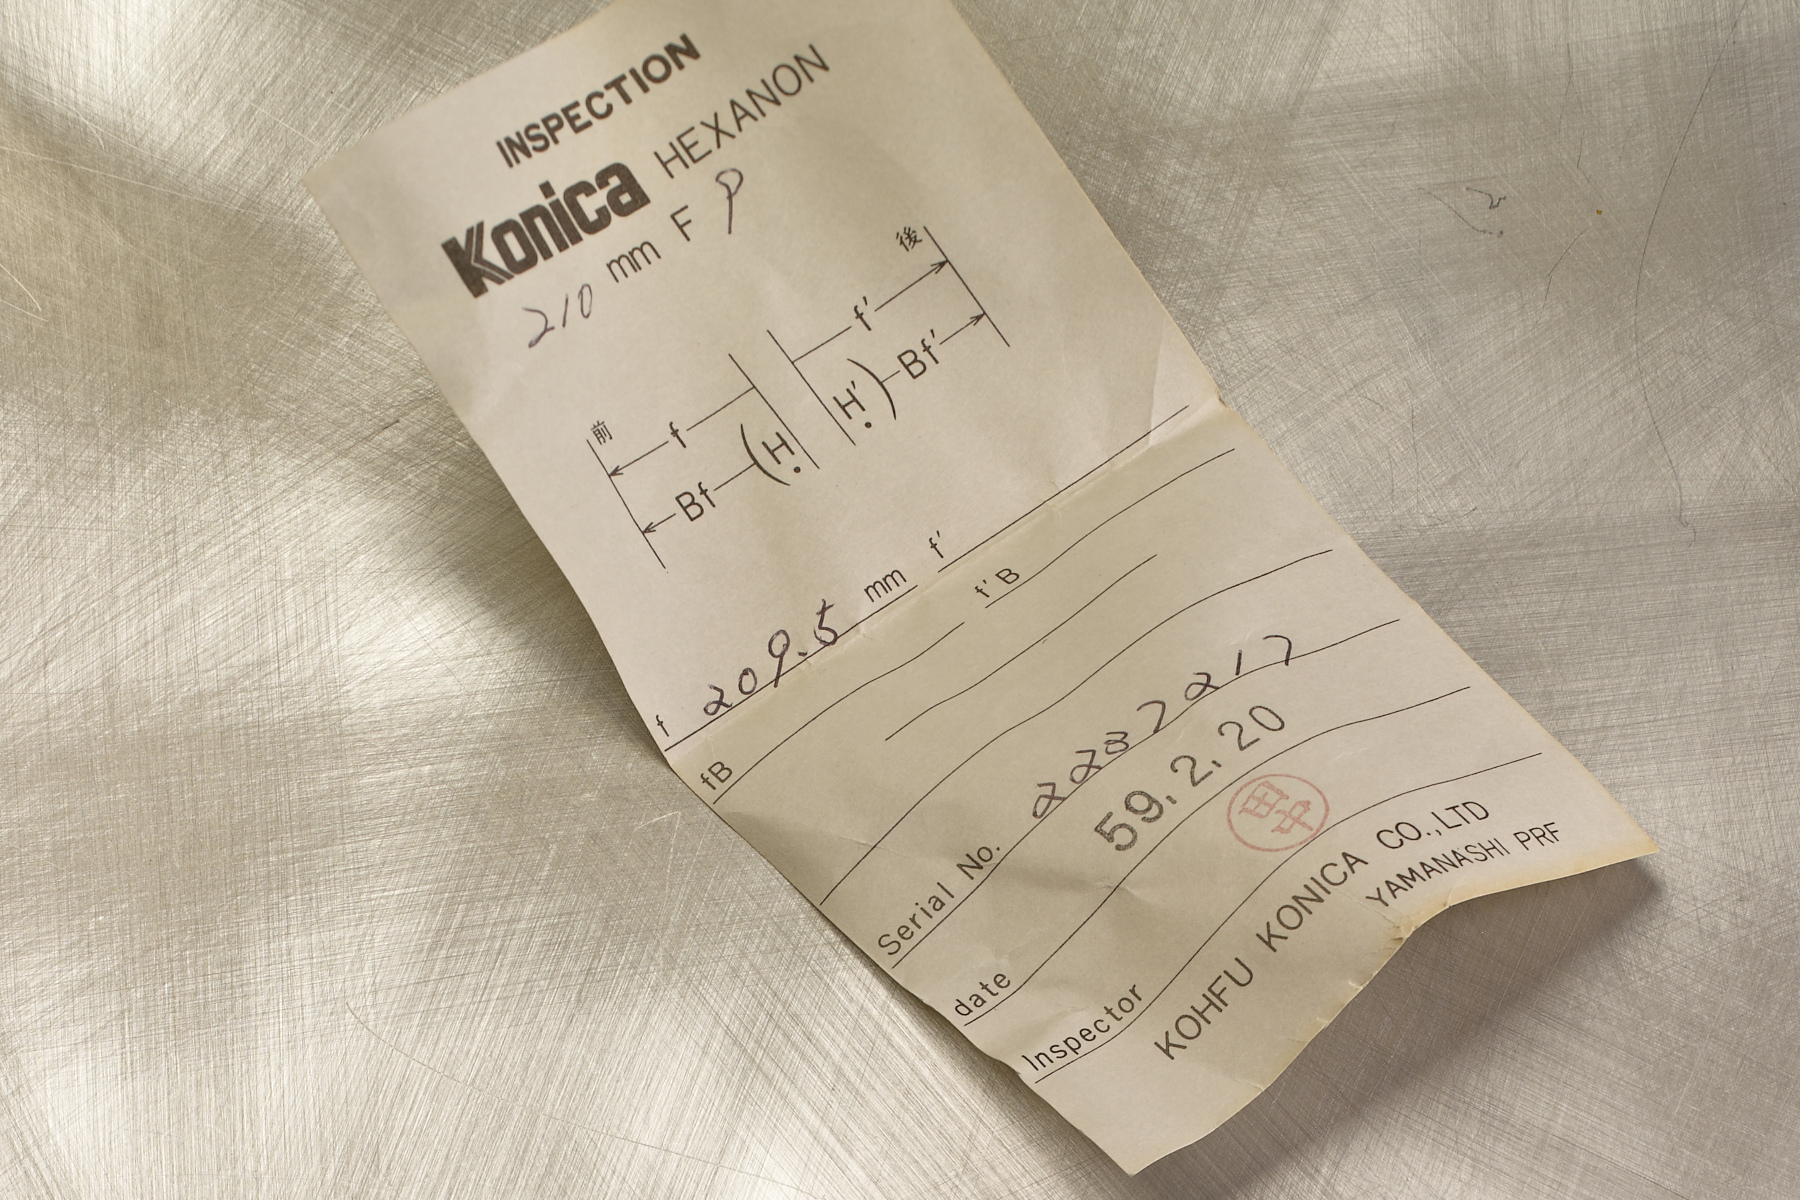 INSPECTION
Konica HEXANON
210 mm F 9
前 後
f f'
Bf (H H') Bf'
f 209.5 mm f'
fB f'B
Serial No. 2287217
date 59.2.20
Inspector 田中
KOHFU KONICA CO.,LTD
YAMANASHI PRF